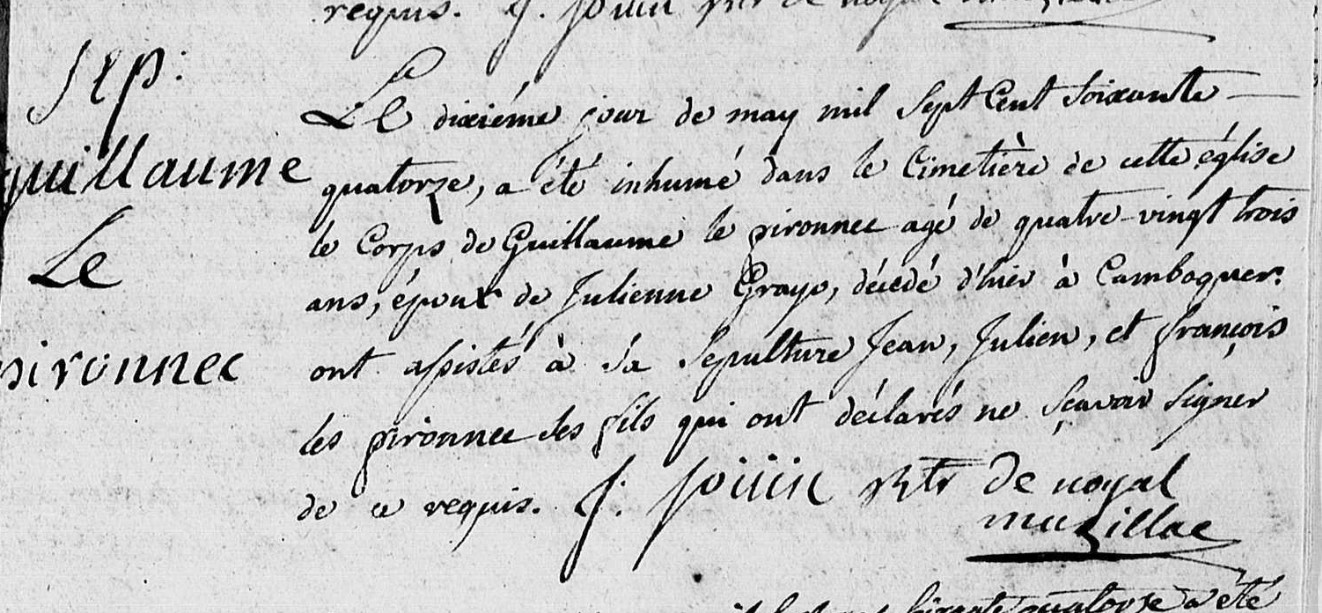 requis. J.
Sep.
Guillaume
Le
pironnec
Le dixiéme jour de may mil Sept Cent Soixante
quatorze, a été inhumé dans le Cimetière de cette église
le Corps de Guillaume le pironnec agé de quatre-vingt trois
ans, époux de Julienne Grayo, décédé d'hier à Camboquer.
ont assistés à sa Sepulture Jean, Julien, et françois
les pironnec ses fils qui ont déclarés ne Sçavoir Signer
de ce requis. J. Rtr de noyal
muzillac
quatorze a été